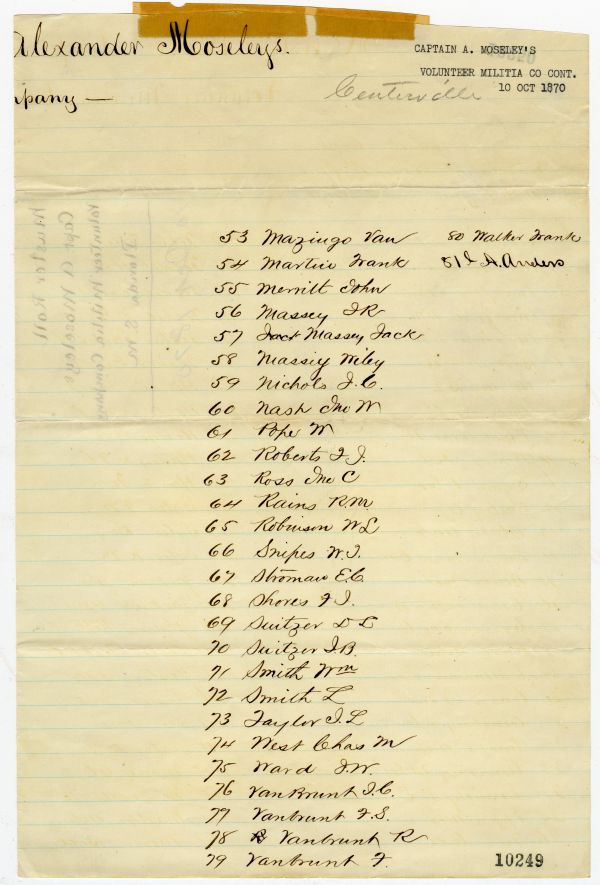 Alexander Moseleys.
mpany —
CAPTAIN A. MOSELEY'S
VOLUNTEER MILITIA CO CONT.
10 OCT 1870
Centerville
53 Mazingo Van
54 Martin Frank
55 Merritt John
56 Massey J R
57 Jack Massey Jack
58 Massiy Wiley
59 Nichols J. C.
60 Nash Jno W
61 Pope W
62 Roberts F J.
63 Ross Jno C
64 Rains R. M
65 Robinson W L
66 Snipes W. J.
67 Stroman E. C.
68 Shores F J.
69 Suitzer D L
70 Suitzer J. B.
71 Smith Wm
72 Smith L
73 Taylor J. L
74 West Chas M
75 Ward J. W.
76 VanBrunt J. C.
77 Vanbrunt F. S.
78 Vanbrunt R
79 Vanbrunt F.
80 Walker Frank
81 A. Anders
Muster Roll
Capt A Moseleys
Volunteer Militia Company
10249